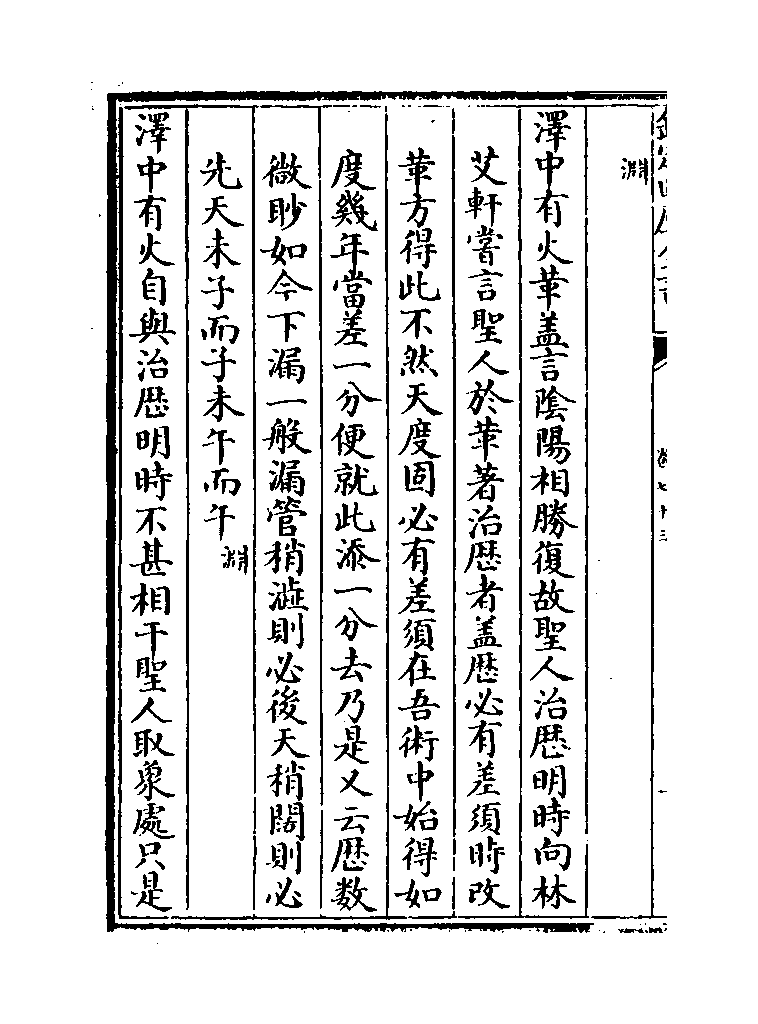 淵
澤中有火革盖言陰陽相勝復故聖人治厯明時向林
艾軒嘗言聖人於革著治厯者盖厯必有差須時改
革方得此不然天度固必有差須在吾術中始得如
度幾年當差一分便就此添一分去乃是又云厯数
微眇如今下漏一般漏管稍澁則必後天稍闊則必
先天未子而子未午而午淵
澤中有火自與治厯明時不甚相干聖人取象處只是